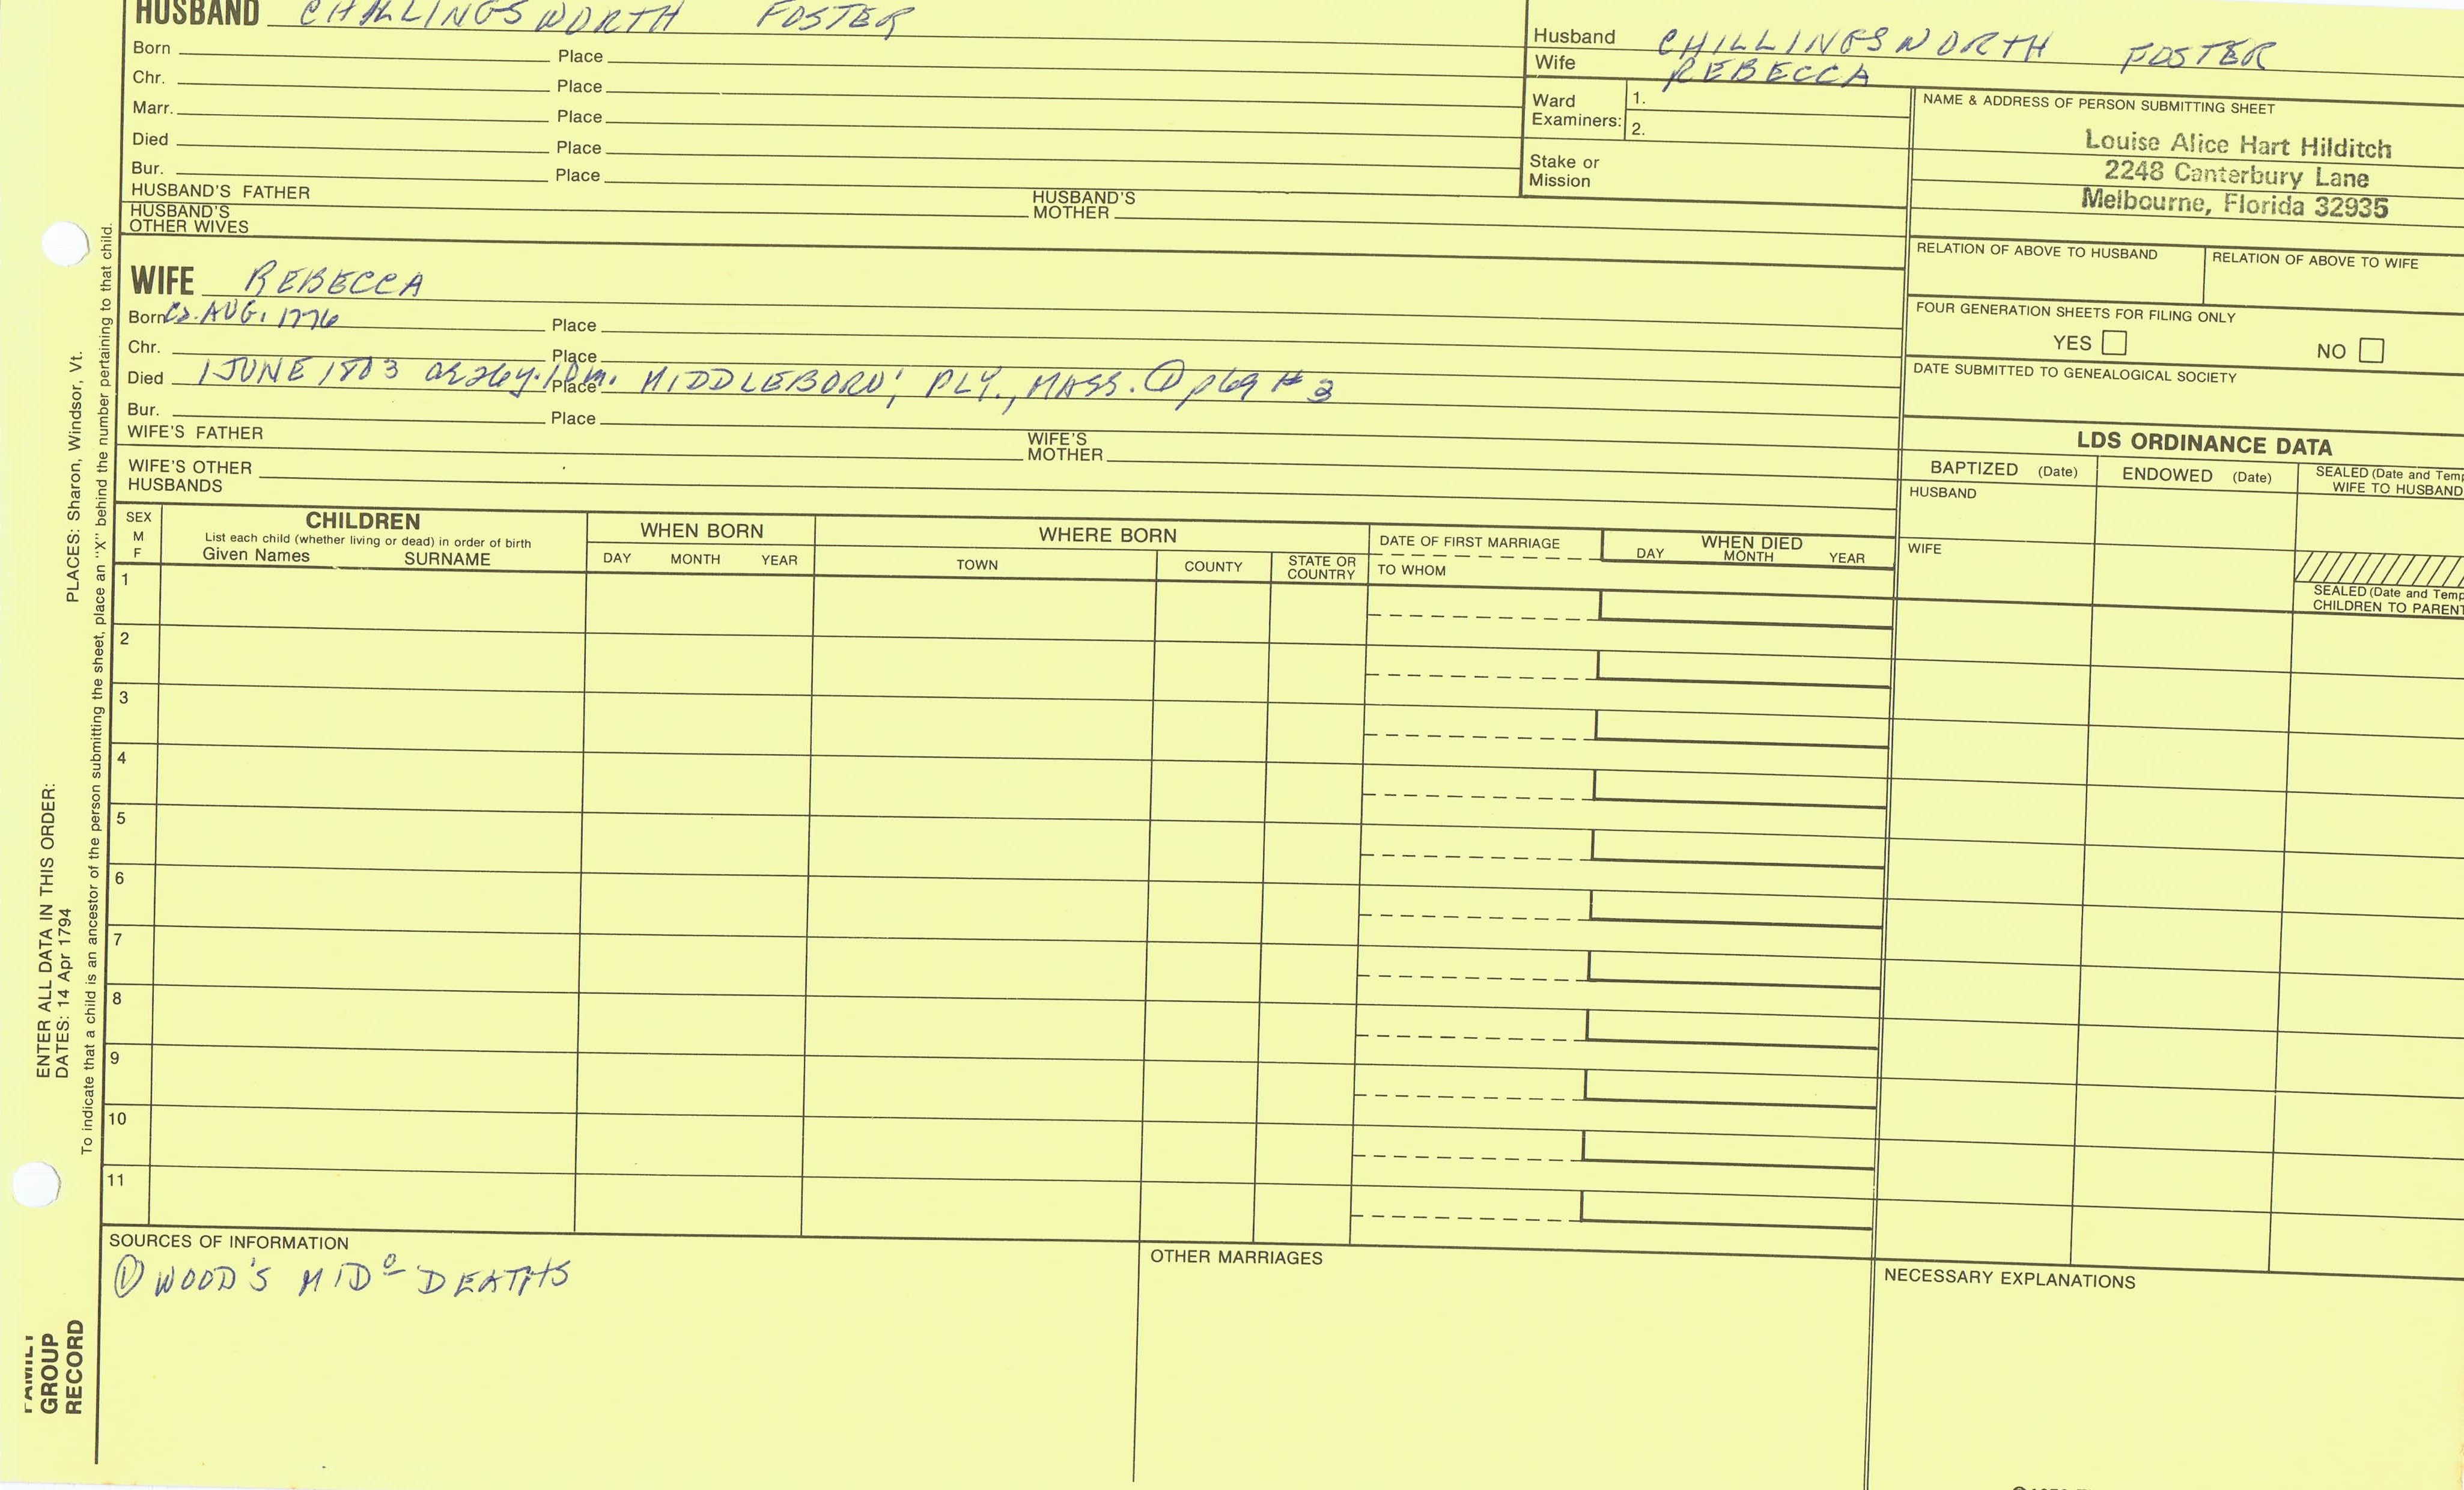 HUSBAND CHILLINGSWORTH FOSTER
Born Place
Chr. Place
Marr. Place
Died Place
Bur. Place
HUSBAND'S FATHER HUSBAND'S MOTHER
HUSBAND'S OTHER WIVES
Husband CHILLINGSWORTH FOSTER
Wife REBECCA
Ward Examiners: 1.
2.
Stake or Mission
NAME & ADDRESS OF PERSON SUBMITTING SHEET
Louise Alice Hart Hilditch
2248 Canterbury Lane
Melbourne, Florida 32935
RELATION OF ABOVE TO HUSBAND RELATION OF ABOVE TO WIFE
FOUR GENERATION SHEETS FOR FILING ONLY
YES NO
DATE SUBMITTED TO GENEALOGICAL SOCIETY
WIFE REBECCA
Born Ca. AUG. 1776 Place
Chr. Place
Died 1 JUNE 1803 ae 26y. 10m. Place MIDDLEBORO', PLY., MASS. ① p69 # 3
Bur. Place
WIFE'S FATHER WIFE'S MOTHER
WIFE'S OTHER HUSBANDS
LDS ORDINANCE DATA
BAPTIZED (Date) ENDOWED (Date) SEALED (Date and Temp
WIFE TO HUSBAND
HUSBAND
WIFE
SEALED (Date and Temp
CHILDREN TO PARENT
SEX
M
F
CHILDREN
List each child (whether living or dead) in order of birth
Given Names SURNAME
WHEN BORN
DAY MONTH YEAR
WHERE BORN
TOWN COUNTY STATE OR COUNTRY
DATE OF FIRST MARRIAGE
TO WHOM
WHEN DIED
DAY MONTH YEAR
1
2
3
4
5
6
7
8
9
10
11
SOURCES OF INFORMATION
① WOOD'S MIDº DEATHS
OTHER MARRIAGES
NECESSARY EXPLANATIONS
PLACES: Sharon, Windsor, Vt.
ENTER ALL DATA IN THIS ORDER:
DATES: 14 Apr 1794
To indicate that a child is an ancestor of the person submitting the sheet, place an "X" behind the number pertaining to that child.
FAMILY
GROUP
RECORD